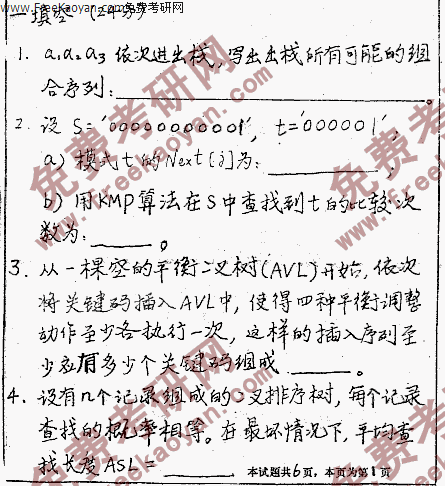 www.FreeKaoyan.com 免费考研网
一 填空 (24分)
1. a₁a₂a₃ 依次进出栈, 写出出栈所有可能的组
合序列: ________。
2. 设 S='00000000001', t='000001',
a) 模式t的Next[j]为: ________;
b) 用KMP算法在S中查找到t的比较次
数为: ______。
3. 从一棵空的平衡二叉树(AVL)开始, 依次
将关键码插入AVL中, 使得四种平衡调整
动作至少各执行一次, 这样的插入序列至
少应有多少个关键码组成 ______。
4. 设有n个记录组成的二叉排序树, 每个记录
查找的概率相等。在最坏情况下, 平均查
找长度ASL= ______
本试题共6页, 本页为第1页
免费考研网
www.freekaoyan.com